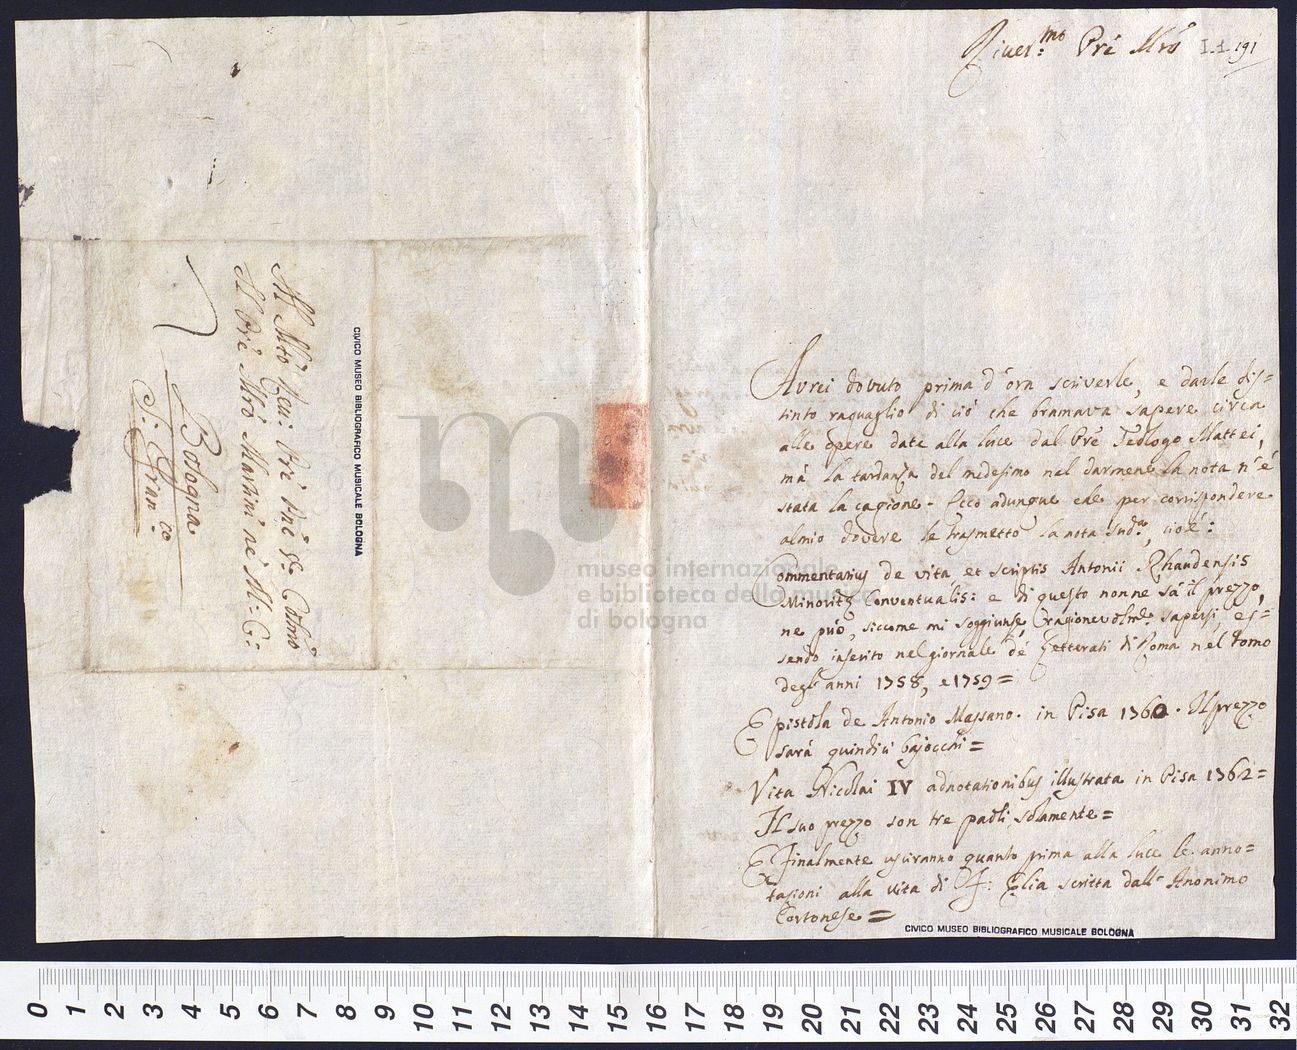 River.mo Prè Mrõ I.1.191
Avrei dovuto prima d'ora scriverle, e darle dis=
tinto raguaglio di ciò che bramava sapere circa
alle opere date alla luce dal Prè Teologo Mattei,
mà la tardanza del medesimo nel darmene la nota n'è
stata la cagione. Ecco adunque che per corrispondere
al mio dovere le trasmetto la nota sud.a, cioè:
Commentarius de vita et scriptis Antonii Rhaudensis
Minoritę Conventualis: e di questo non ne sà il prezzo,
ne può, siccome mi soggiunse ragionevolm.e sapersi, es=
sendo inserito nel giornale de' Letterati di Roma nel Tomo
degl'anni 1758, e 1759=
Epistola de Antonio Massano. in Pisa 1760. Il prezzo
sarà quindici bajocchi=
Vita Nicolai IV adnotationibus illustrata in Pisa 1762=
Il suo prezzo son tre paoli solamente=
E finalmente usciranno quanto prima alla luce le anno=
tazioni alla vita di F: Elia scritta dall'Anonimo
Cortonese=
CIVICO MUSEO BIBLIOGRAFICO MUSICALE BOLOGNA
CIVICO MUSEO BIBLIOGRAFICO MUSICALE BOLOGNA
Al Mtõ Reu: Prè
Il Prè Mrõ Martini ne' M: C:
Bologna
S: Fran:co
museo internazionale
e biblioteca della musica
di bologna
0 1 2 3 4 5 6 7 8 9 10 11 12 13 14 15 16 17 18 19 20 21 22 23 24 25 26 27 28 29 30 31 32